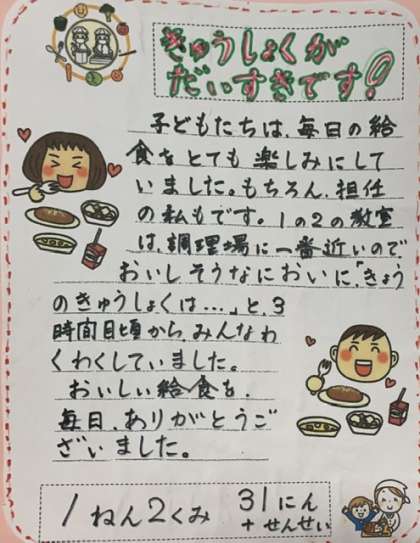 きゅうしょくが
だいすきです!
子どもたちは、毎日の給
食をとても楽しみにして
いました。もちろん、担任
の私もです。1の2の教室
は、調理場に一番近いので
おいしそうなにおいに、「きょう
のきゅうしょくは…」と、3
時間目頃から、みんなわ
くわくしていました。
おいしい給食を、
毎日、ありがとうご
ざいました。
1ねん2くみ 31にん
+せんせい